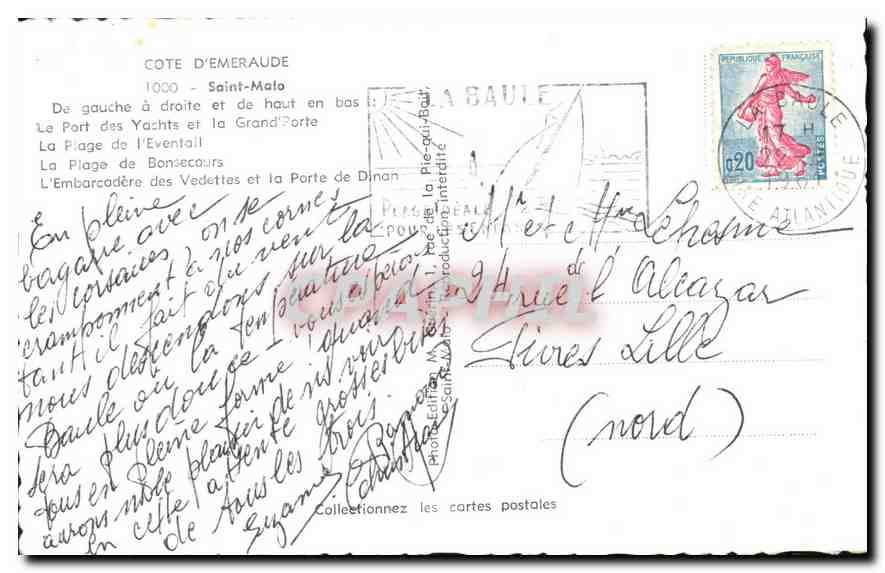 COTE D'EMERAUDE
1000 - Saint-Malo
De gauche à droite et de haut en bas :
Le Port des Yachts et la Grand'Porte
La Plage de l'Eventail
La Plage de Bonsecours
L'Embarcadère des Vedettes et la Porte de Dinan
En pleine
bagarre avec
les corsaires, on se
cramponnent à nos cornes
tant il fait du vent
nous descendons sur la
Baule où la température
sera plus douce - vous espérons
tous en pleine forme, quand
aurons notre plaisir de vous voir
en cette attente grosses bises
de tous les trois.
Suzanne Raymonde
Christian
Photo-Edition M. 1, rue de la Pie-qui-Boit,
Saint-Malo reproduction interdite
LA BAULE
PLAGE IDÉALE
POUR
REPUBLIQUE FRANÇAISE
0,20
POSTES
LA BAULE
17 H
LOIRE ATLANTIQUE
Mr et Mme Lehosme
24 rue de l'Alcazar
Fives Lille
(nord)
CPAPHIL
Collectionnez les cartes postales